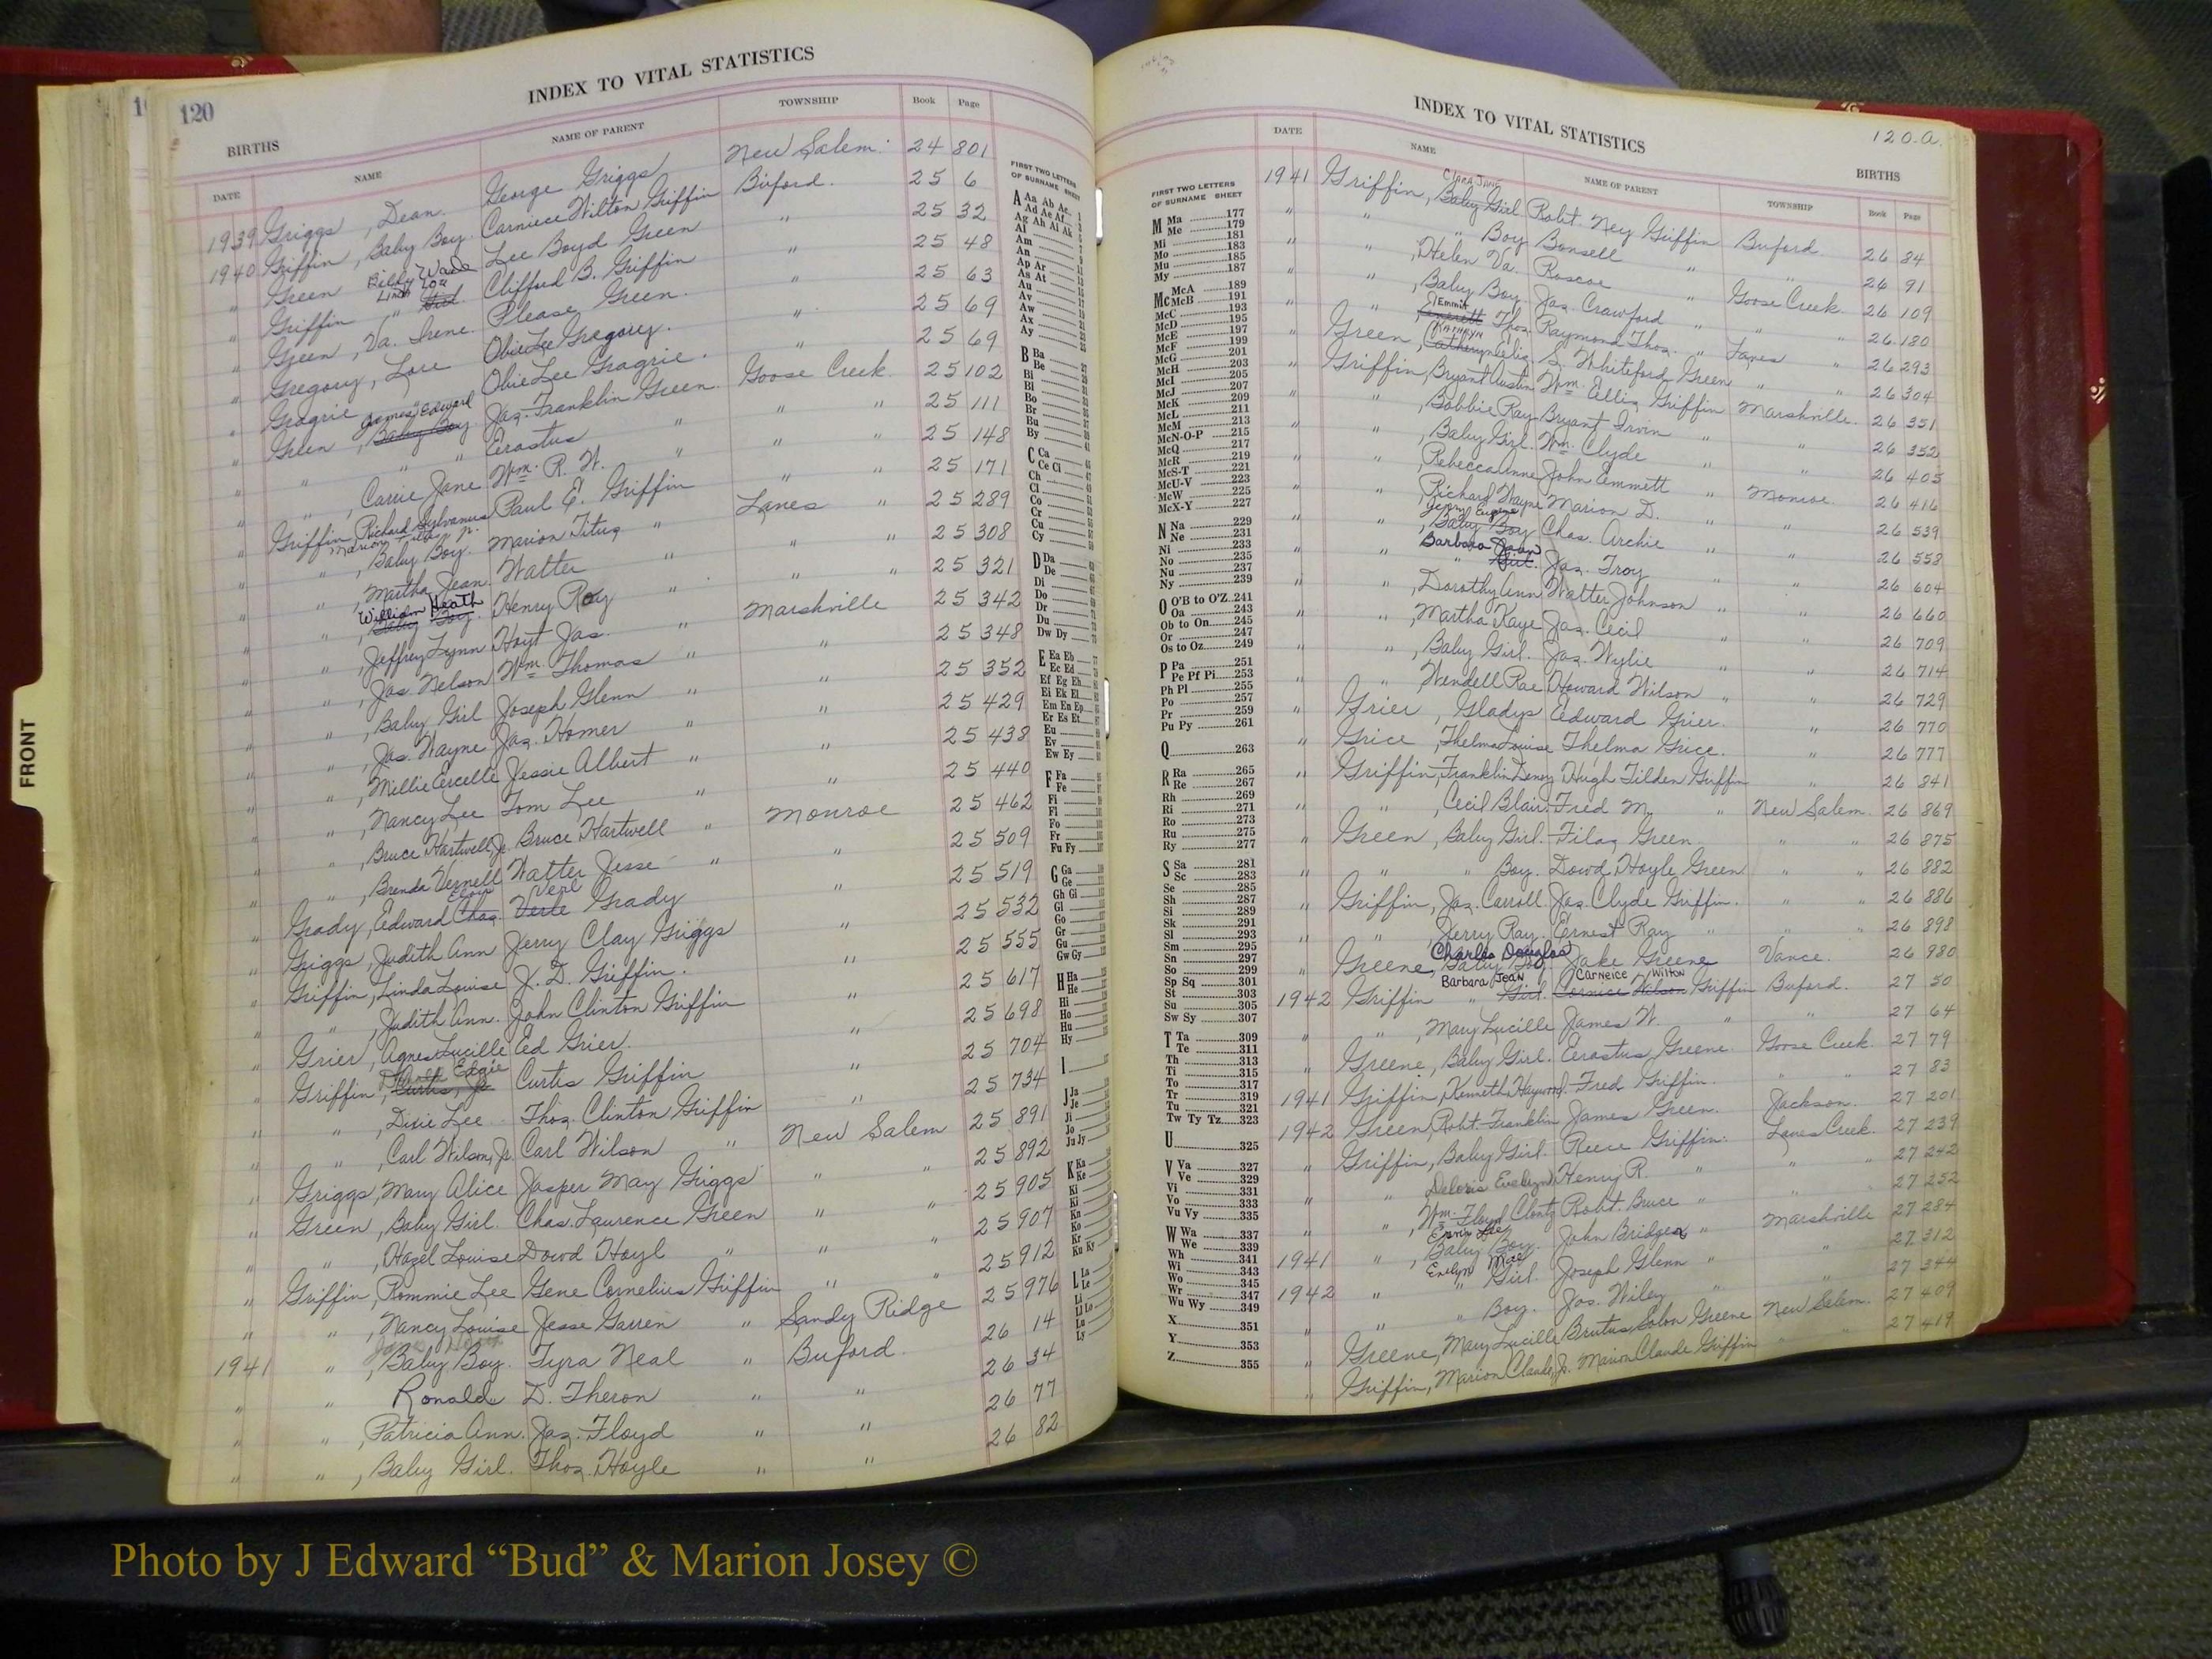 120
INDEX TO VITAL STATISTICS
BIRTHS
DATE NAME NAME OF PARENT TOWNSHIP Book Page
1939 Griggs, Dean. George Griggs New Salem 24 801
1940 Griffin, Baby Boy. Carniece Wilton Griffin Buford. 25 6
" Green Billy Wade Lee Boyd Green " 25 32
" Griffin " Linda Lou Girl. Clifford B. Griffin " 25 48
" Green, Va. Irene. Please Green. " 25 63
" Gregory, Lore Obie Lee Gregory. " 25 69
" Gragrie Obie Lee Gragrie. " 25 69
" Green, James Edward Baby Boy Jas. Franklin Green. Goose Creek. 25 102
" " " " Erastus " " " 25 111
" ", Carrie Jane Wm. R. W. " " " 25 148
" Griffin, Richard Sylvanus Paul E. Griffin " " 25 171
" ", Marion Titus Jr. Baby Boy. Marion Titus " Lanes " 25 289
" ", Martha Jean Walter " " " 25 308
" ", William Heath Baby Boy. Henry Roy " " " 25 321
" ", Jeffrey Lynn Hoyt Jas. " Marshville 25 342
" ", Jas. Nelson Wm. Thomas " " 25 348
" ", Baby Girl Joseph Glenn " " 25 352
" ", Jas. Wayne Jas. Homer " " 25 429
" ", Millie Ercelle Jessie Albert " " 25 438
" ", Nancy Lee Tom Lee " " 25 440
" ", Bruce Hartwell, Jr. Bruce Hartwell " Monroe 25 462
" ", Brenda Vernell Walter Jesse " " 25 509
" Grady, Edward Chas. Verle Verl Grady " 25 519
" Griggs, Judith Ann Jerry Clay Griggs " 25 532
" Griffin, Linda Louise J. D. Griffin. " 25 555
" ", Judith Ann. John Clinton Griffin " 25 617
" Grier, Agnes Lucille Ed Grier. " 25 698
" Griffin, Edgie Curtis, Jr. Curtis Griffin " 25 704
" ", Dixie Lee Thos. Clinton Griffin " 25 734
" ", Carl Wilson, Jr. Carl Wilson " New Salem 25 891
" Griggs, Mary Alice Jasper May Griggs " " 25 892
" Green, Baby Girl. Chas. Laurence Green " " 25 905
" ", Hazel Louise Dowd Hoyl " " " 25 907
" Griffin, Rommie Lee Gene Cornelius Griffin " " 25 912
" ", Nancy Louise Jesse Garren " Sandy Ridge 25 976
1941 ", Baby Boy. Tyra Neal " Buford. 26 14
" " Ronald D. Theron " " 26 34
" ", Patricia Ann. Jas. Floyd " " 26 77
" ", Baby Girl. Thos. Hoyle " " 26 82
FIRST TWO LETTERS
OF SURNAME SHEET
A Aa Ab Ac
Ad Ae Af
Ag Ah Ai Ak
Al
Am
An
Ap Ar
As At
Au
Av
Aw
Ax
Ay
B Ba
Be
Bi
Bl
Bo
Br
Bu
By
C Ca
Ce Ci
Ch
Cl
Co
Cr
Cu
Cy
D Da
De
Di
Do
Dr
Du
Dw Dy
E Ea Eb
Ec Ed
Ef Eg Eh
Ei Ek El
Em En Ep
Er Es Et
Eu
Ev
Ew Ey
F Fa
Fe
Fi
Fl
Fo
Fr
Fu Fy
G Ga
Ge
Gh Gi
Gl
Go
Gr
Gu
Gw Gy
H Ha
He
Hi
Ho
Hu
Hy
I
J Ja
Je
Ji
Jo
Ju Jy
K Ka
Ke
Ki
Kl
Kn
Ko
Kr
Ku Ky
L La
Le
Li
Ll Lo
Lu
Ly
FRONT
INDEX TO VITAL STATISTICS
120-a.
BIRTHS
DATE NAME NAME OF PARENT TOWNSHIP Book Page
FIRST TWO LETTERS
OF SURNAME SHEET
M Ma 177
Me 179
Mi 181
Mo 183
Mu 185
My 187
Mc McA 189
McB 191
McC 193
McD 195
McE 197
McF 199
McG 201
McH 203
McI 205
McJ 207
McK 209
McL 211
McM 213
McN-O-P 215
McQ 217
McR 219
McS-T 221
McU-V 223
McW 225
McX-Y 227
N Na 229
Ne 231
Ni 233
No 235
Nu 237
Ny 239
O O'B to O'Z 241
Oa 243
Ob to On 245
Or 247
Os to Oz 249
P Pa 251
Pe Pf Pi 253
Ph Pl 255
Po 257
Pr 259
Pu Py 261
Q 263
R Ra 265
Re 267
Rh 269
Ri 271
Ro 273
Ru 275
Ry 277
S Sa 281
Sc 283
Se 285
Sh 287
Si 289
Sk 291
Sl 293
Sm 295
Sn 297
So 299
Sp Sq 301
St 303
Su 305
Sw Sy 307
T Ta 309
Te 311
Th 313
Ti 315
To 317
Tr 319
Tu 321
Tw Ty Tz 323
U 325
V Va 327
Ve 329
Vi 331
Vo 333
Vu Vy 335
W Wa 337
We 339
Wh 341
Wi 343
Wo 345
Wr 347
Wu Wy 349
X 351
Y 353
Z 355
1941 Griffin, Clara Jane Baby Girl Robt. Ney Griffin Buford. 26 84
" " " Boy Bonsell " " 26 91
" ", Helen Va. Roscoe " Goose Creek. 26 109
" ", Baby Boy Jas. Crawford " " " 26 180
" " Emmit Thos. Raymond Thos. " Lanes " 26 293
" Green, Kathryn Catheryn Eliz. S. Whiteford Green " " 26 304
" Griffin, Bryant Austin Wm. Ellis Griffin Marshville. 26 351
" ", Bobbie Ray Bryant Irvin " " 26 352
" ", Baby Girl. Wm. Clyde " " 26 405
" ", Rebecca Anne John Emmett " Monroe. 26 416
" ", Richard Wayne Marion D. " " 26 539
" ", Jerry Eugene Baby Boy Chas. Archie " " 26 558
" " Barbara " Girl. Jas. Troy " 26 604
" ", Dorothy Ann Walter Johnson " " 26 660
" ", Martha Kaye Jas. Cecil " " 26 709
" ", Baby Girl. Jas. Wylie " " 26 714
" ", Wendell Rae Howard Wilson " " 26 729
" Grier, Gladys Edward Grier. " 26 770
" Grice, Thelma Louise Thelma Grice. " 26 777
" Griffin, Franklin Hugh Tilden Griffin " 26 841
" " Cecil Blair. Fred M. " New Salem. 26 869
" Green, Baby Girl. Filas Green. " " 26 875
" " " Boy. Dowd Hoyle Green " " 26 882
" Griffin, Jas. Carroll Jas. Clyde Griffin. " " 26 886
" ", Jerry Ray. Ernest Ray " " " 26 898
" Greene, Charles Douglas Baby Boy. Jake Greene Vance. 26 980
1942 Griffin " Barbara Jean Girl. Carneice Wilton Cornice Wilson Griffin Buford. 27 50
" ", Mary Lucille James W. " " 27 64
" Greene, Baby Girl. Erastus Greene. Goose Creek. 27 79
1941 Griffin, Kenneth Haywood. Fred Griffin. " " 27 83
1942 Green, Robt. Franklin James Green. Jackson. 27 201
" Griffin, Baby Girl. Reece Griffin. Lanes Creek. 27 239
" " Deloris Evelyn Henry R. " " " 27 242
" ", Wm. Floyd Clontz Robt. Bruce " " 27 252
1941 ", Ervin Lee Baby Boy. John Bridges " Marshville 27 284
1942 " Evelyn Mae " Girl. Joseph Glenn " " 27 312
" " " Boy. Jos. Wiley " " 27 344
" Greene, Mary Lucille Brutus Solon Greene New Salem. 27 409
" Griffin, Marion Claude, Jr. Marion Claude Griffin " " 27 419
Photo by J Edward “Bud” & Marion Josey ©